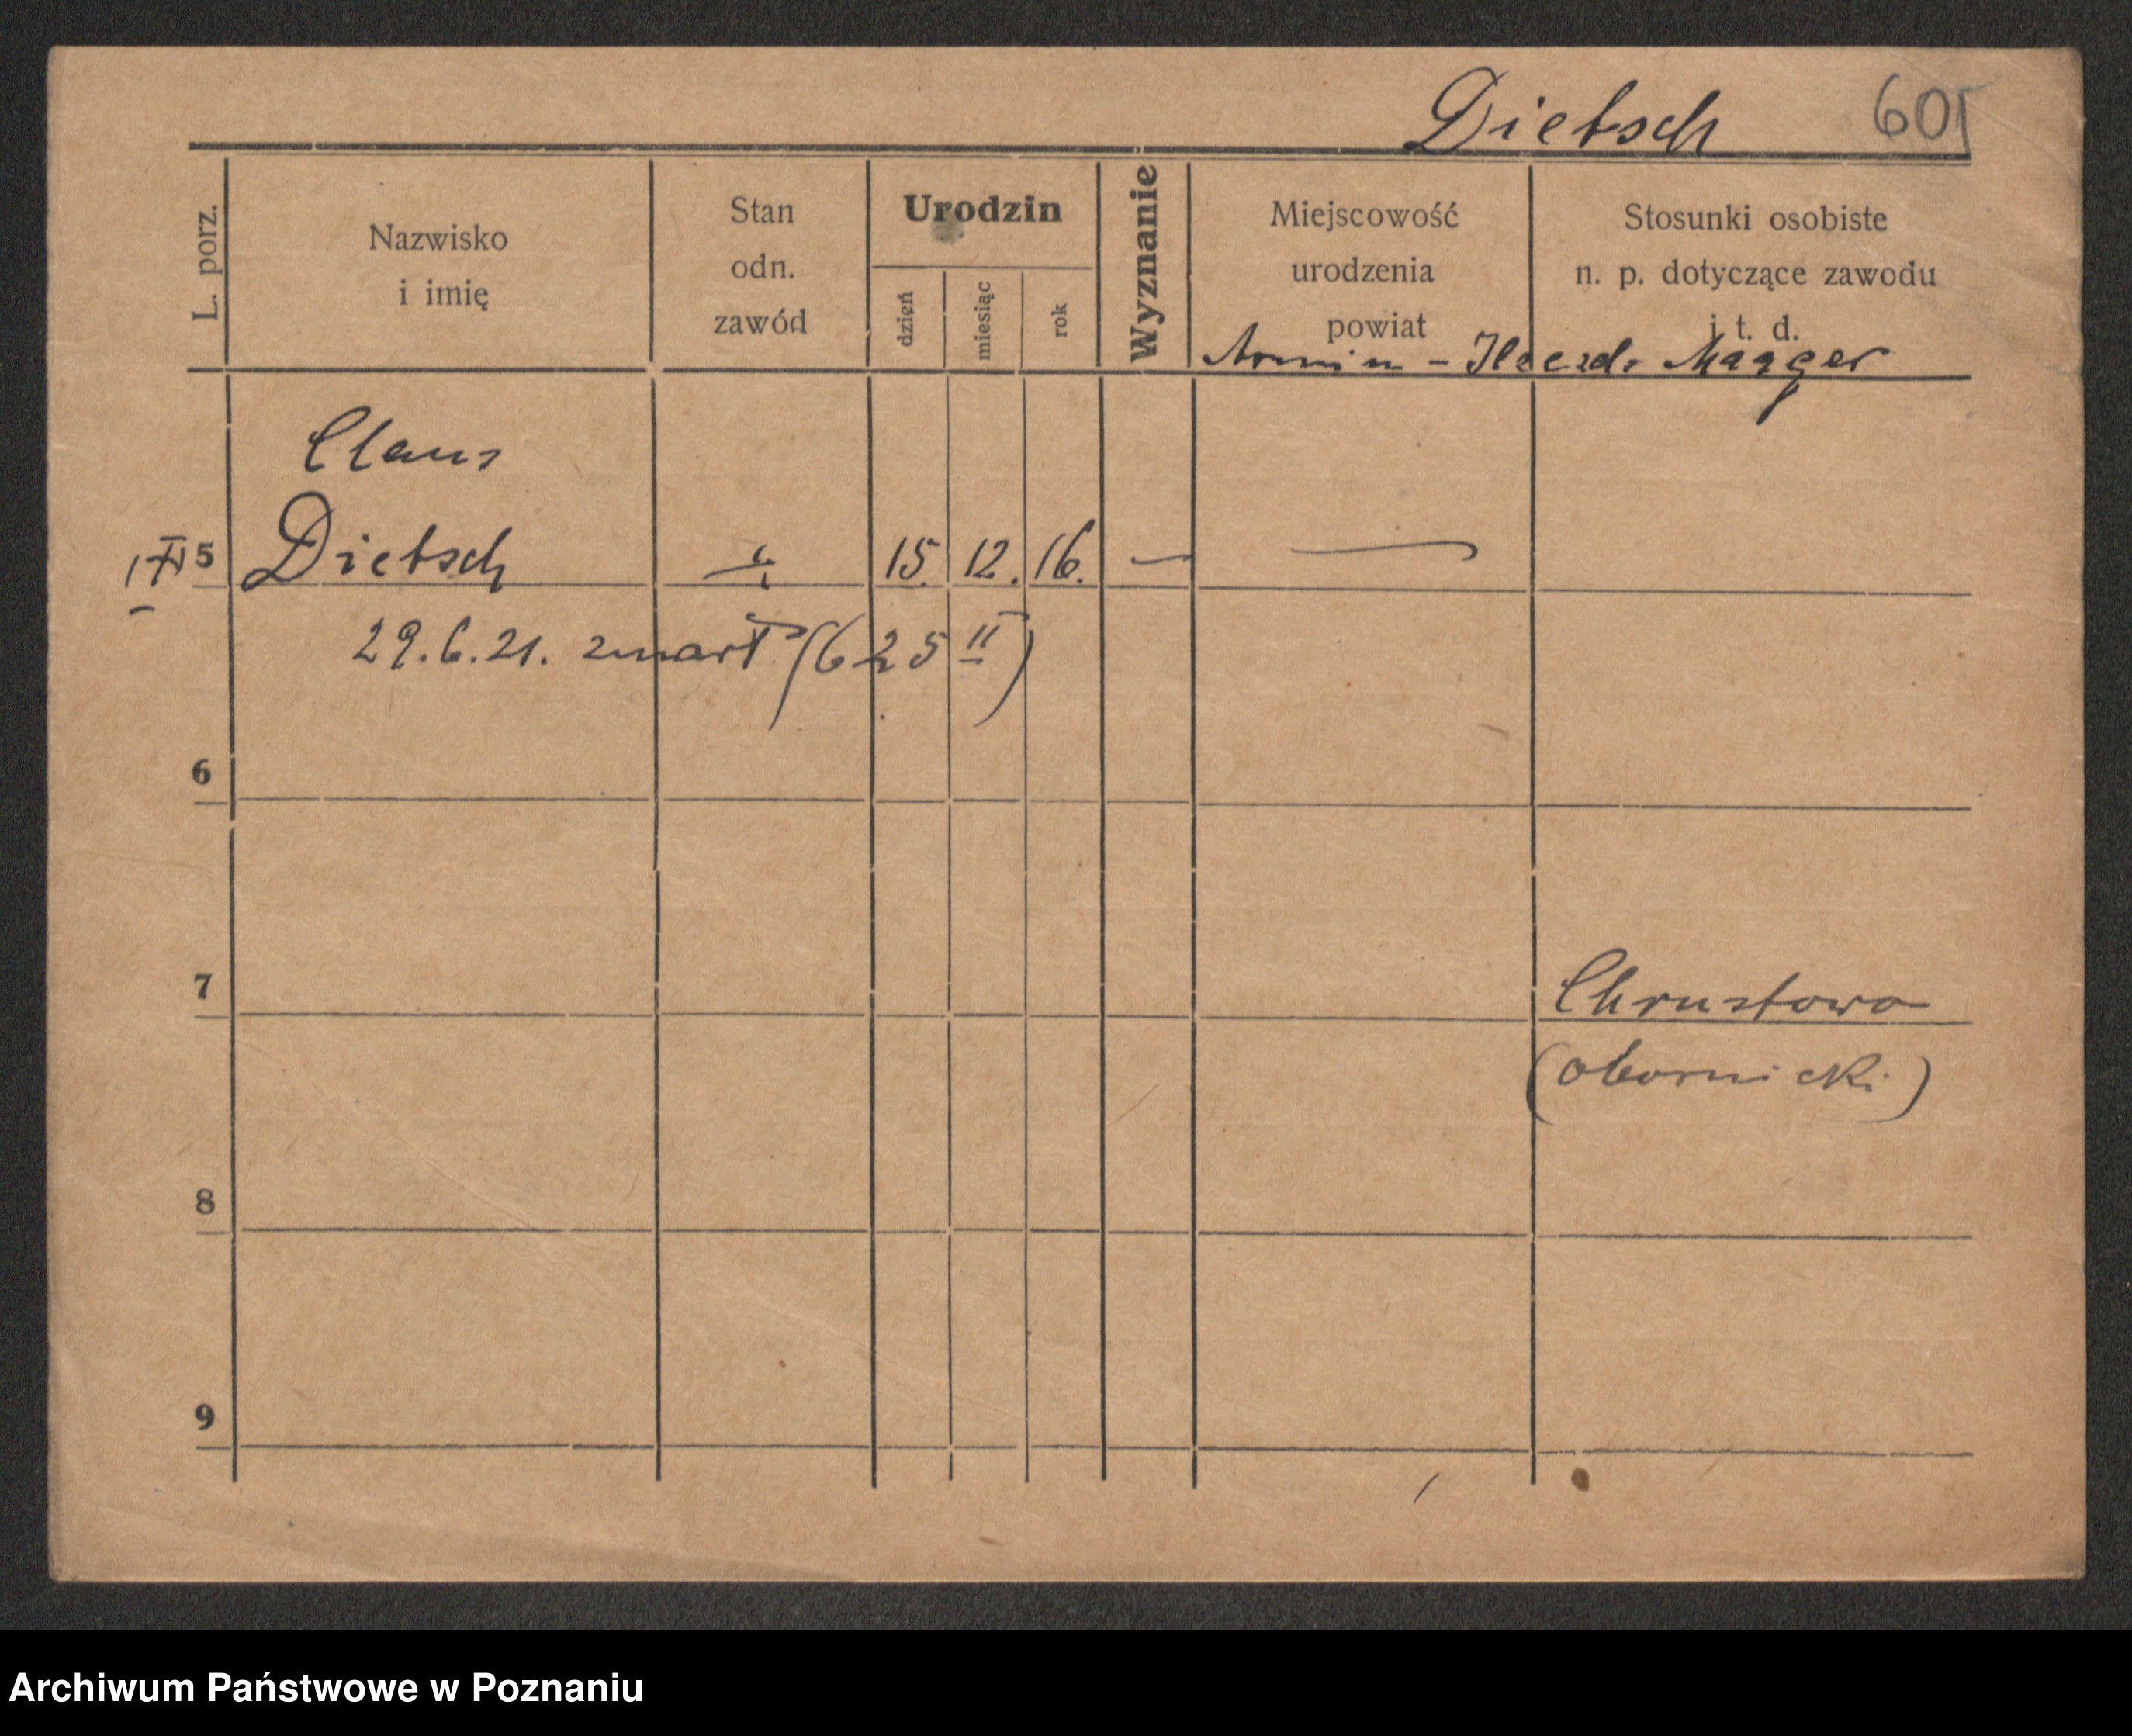 Dietsch 601
L. porz.
Nazwisko
i imię
Stan
odn.
zawód
Urodzin
dzień
miesiąc
rok
Wyznanie
Miejscowość
urodzenia
powiat
Stosunki osobiste
n. p. dotyczące zawodu
i t. d.
Armin -
Claus
5 Dietsch 15. 12. 16. —
29.6.21. zmarł (625 II)
6
7 Chrustowo
(obornicki)
8
9
Archiwum Państwowe w Poznaniu